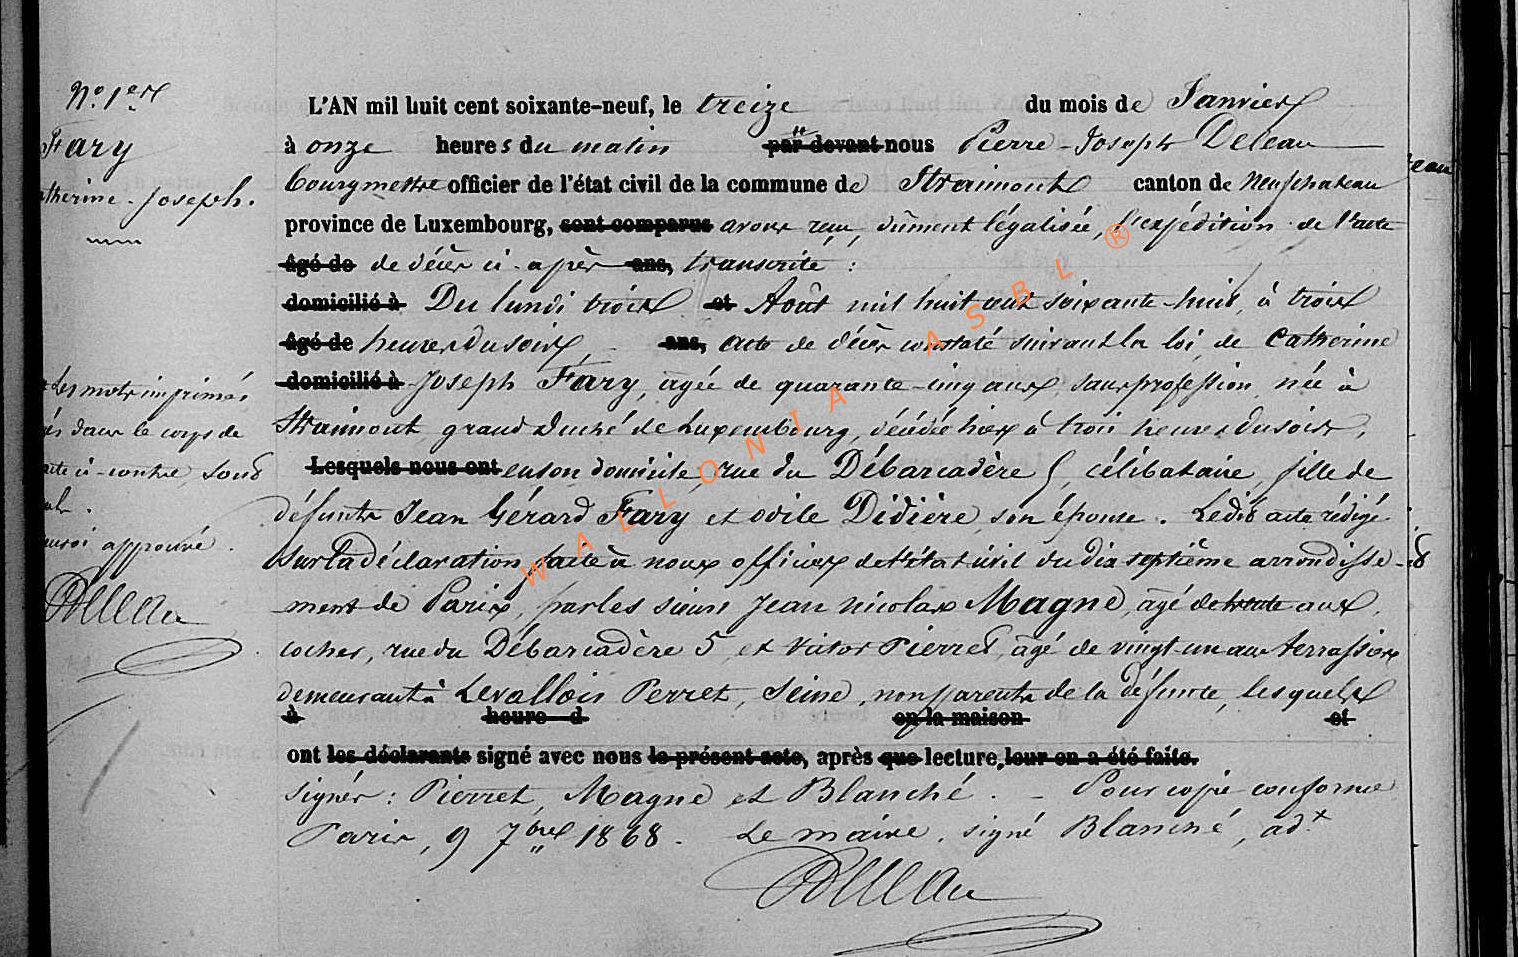 N.º 1er
Fary
therine-Joseph.
Les mots imprimés
és dans le corps de
acte ci-contre, sont
uls.
uvoi approuvé.
Deleau
L'AN mil huit cent soixante-neuf, le treize du mois de Janvier
à onze heures du matin par devant nous Pierre-Joseph Deleau
bourgmestre officier de l'état civil de la commune de Straimont canton de Neufchateau
province de Luxembourg, sont comparus avons reçu, dûment légalisée, l'expédition de l'acte
âgé de de décès ci-après ans, transcrite :
domicilié à Du lundi trois et Août mil huit cent soixante-huit, à trois
âgé de heures du soir, ans, acte de décès constaté suivant la loi, de Catherine
domicilié à Joseph Fary, âgée de quarante-cinq ans, sans profession, née à
Straimont, grand Duché de Luxembourg, décédée hier à trois heures du soir,
Lesquels nous ont en son domicile, rue du Débarcadère 5, célibataire, fille de
défunts Jean Gérard Fary et Odile Didière, son épouse. Ledit acte rédigé
sur la déclaration faite à nous officier de l'état civil du dix septième arrondisse-
ment de Paris, par les sieurs Jean Nicolas Magne, âgé de trente ans,
cocher, rue du Débarcadère 5, et Victor Pierret, âgé de vingt-un ans terrassier
demeurant à Levallois Perret, Seine, non parents de la défunte, lesquels
à heure d en la maison et
ont les déclarants signé avec nous le présent acte, après que lecture, leur en a été faite.
signés : Pierret, Magne et Blanché. - Pour copie conforme
Paris, 9 7bre 1868. Le maire, signé Blanché, adt
Deleau
eau
WALLONIA ASBL ®